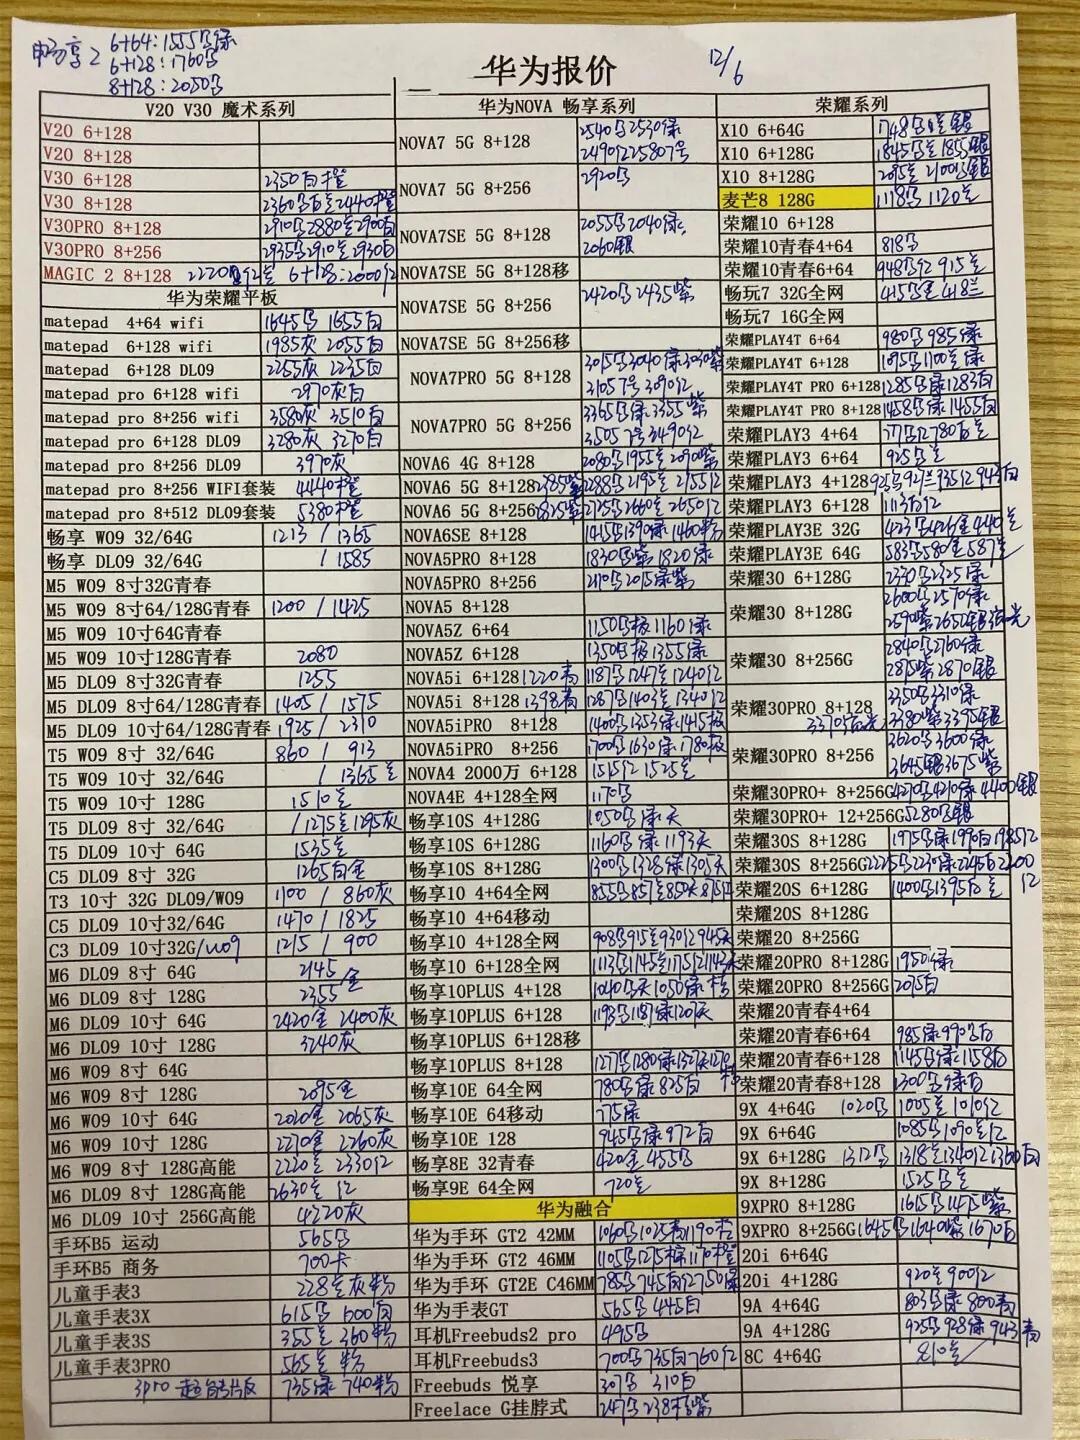 畅享2 6+64:1555乌绿
6+128:1760乌
8+128:2050乌
华为报价 12/6
V20 V30 魔术系列
V20 6+128
V20 8+128
V30 6+128 2350白橙
V30 8+128 2360乌白兰2440橙
V30PRO 8+128 2910乌2880兰2900白
V30PRO 8+256 2935乌2910兰2930白
MAGIC 2 8+128 6+128:2000红
华为荣耀平板
matepad 4+64 wifi 1645乌 1655白
matepad 6+128 wifi 1985灰 2055白
matepad 6+128 DL09 2255灰 2235白
matepad pro 6+128 wifi 2970灰白
matepad pro 8+256 wifi 3580灰 3510白
matepad pro 6+128 DL09 3280灰 3270白
matepad pro 8+256 DL09 3970灰
matepad pro 8+256 WIFI套装 4440橙
matepad pro 8+512 DL09套装 5380橙
畅享 W09 32/64G 1213 / 1365
畅享 DL09 32/64G / 1585
M5 W09 8寸32G青春
M5 W09 8寸64/128G青春 1200 / 1425
M5 W09 10寸64G青春
M5 W09 10寸128G青春 2080
M5 DL09 8寸32G青春 1255
M5 DL09 8寸64/128G青春 1405 / 1575
M5 DL09 10寸64/128G青春 1925 / 2310
T5 W09 8寸 32/64G 860 / 913
T5 W09 10寸 32/64G / 1365兰
T5 W09 10寸 128G 1510兰
T5 DL09 8寸 32/64G / 1275兰1295灰
T5 DL09 10寸 64G 1535兰
C5 DL09 8寸 32G 1265白金
T3 10寸 32G DL09/W09 1100 / 860灰
C5 DL09 10寸32/64G 1470 / 1825
C3 DL09 10寸32G/W09 1215 / 900
M6 DL09 8寸 64G 2145
M6 DL09 8寸 128G 2355金
M6 DL09 10寸 64G 2420金 2400灰
M6 DL09 10寸 128G 3240灰
M6 W09 8寸 64G
M6 W09 8寸 128G 2095金
M6 W09 10寸 64G 2020金 2065灰
M6 W09 10寸 128G 2270金 2260灰
M6 W09 8寸 128G高能 2220兰 2330红
M6 DL09 8寸 128G高能 2630兰 红
M6 DL09 10寸 256G高能 4220灰
手环B5 运动 565乌
手环B5 商务 700卡
儿童手表3 228兰灰粉
儿童手表3X 615乌 600白
儿童手表3S 355兰 360粉
儿童手表3PRO 565兰 粉
3pro 超能版 735绿 740粉
华为NOVA 畅享系列
NOVA7 5G 8+128 2540乌2530绿
2490红2580 7号
NOVA7 5G 8+256 2920乌
NOVA7SE 5G 8+128 2055乌2040绿
2060银
NOVA7SE 5G 8+128移
NOVA7SE 5G 8+256 2420乌 2435紫
NOVA7SE 5G 8+256移
NOVA7PRO 5G 8+128 3015乌3040绿3030紫
3105 7号3090红
NOVA7PRO 5G 8+256 3365乌绿3355紫
3505 7号3490红
NOVA6 4G 8+128 2080乌1955兰2090紫
NOVA6 5G 8+128
NOVA6 5G 8+256
NOVA6SE 8+128 1415乌1390绿1460粉
NOVA5PRO 8+128 1830乌紫 1820绿
NOVA5PRO 8+256
NOVA5 8+128
NOVA5Z 6+64 1150乌极1160绿
NOVA5Z 6+128 1350乌极1355绿
NOVA5i 6+128 1220青 1187乌1247兰1240红
NOVA5i 8+128 1398青 1287乌1403兰1340红
NOVA5iPRO 8+128 1400乌1353绿1415极
NOVA5iPRO 8+256 1700乌1630绿1780极
NOVA4 2000万 6+128 1515红1525兰
NOVA4E 4+128全网 1170乌
畅享10S 4+128G 1050乌绿天
畅享10S 6+128G 1160乌绿1193天
畅享10S 8+128G 1300乌1328绿1305天
畅享10 4+64全网 855乌857兰850天875红
畅享10 4+64移动
畅享10 4+128全网 908乌915兰930红945天
畅享10 6+128全网
畅享10PLUS 4+128 1040乌天1050绿 橙
畅享10PLUS 6+128
畅享10PLUS 6+128移
畅享10PLUS 8+128
畅享10E 64全网 780乌绿825白
畅享10E 64移动 775绿
畅享10E 128 945乌绿 972白
畅享8E 32青春 420金 455乌
畅享9E 64全网 720兰
华为融合
华为手环 GT2 42MM
华为手环 GT2 46MM
华为手环 GT2E C46MM
华为手表GT 565乌 445白
耳机Freebuds2 pro 495乌
耳机Freebuds3 700乌735白760红
Freebuds 悦享 307乌 310白
Freelace G挂脖式 247乌238橙紫
荣耀系列
X10 6+64G
X10 6+128G 1845乌兰1855银
X10 8+128G 2095兰 2100乌银
麦芒8 128G 1118乌 1120兰
荣耀10 6+128
荣耀10青春4+64 818乌
荣耀10青春6+64 948乌红 915兰
畅玩7 32G全网 415乌金 418兰
畅玩7 16G全网
荣耀PLAY4T 6+64 980乌 985绿
荣耀PLAY4T 6+128 1095乌1100兰绿
荣耀PLAY4T PRO 6+128 1285乌绿1283白
荣耀PLAY4T PRO 8+128 1458乌绿1455白
荣耀PLAY3 4+64
荣耀PLAY3 6+64 925乌兰
荣耀PLAY3 4+128
荣耀PLAY3 6+128 1113白红
荣耀PLAY3E 32G 423乌426金440兰
荣耀PLAY3E 64G 583乌580金587兰
荣耀30 6+128G 2330乌2325绿
荣耀30 8+128G 2600乌2570绿
荣耀30 8+256G 2840乌2760绿
2875紫2870银
荣耀30PRO 8+128 3350乌3310绿
3380紫3395银
荣耀30PRO 8+256 3620乌3600绿
3645银3675紫
荣耀30PRO+ 8+256G 4270乌4210绿4400银
荣耀30PRO+ 12+256G 5280乌银
荣耀30S 8+128G 1975乌绿1990白1985红
荣耀30S 8+256G 2225乌2230绿2245白2200红
荣耀20S 6+128G 1400乌1395白兰
荣耀20S 8+128G
荣耀20 8+256G
荣耀20PRO 8+128G 1950绿
荣耀20PRO 8+256G 2075白
荣耀20青春4+64
荣耀20青春6+64 985绿990乌白
荣耀20青春6+128 1145乌绿1158白
荣耀20青春8+128 1300乌绿白
9X 4+64G 1020乌 1005兰1010红
9X 6+64G 1085乌1090兰红
9X 6+128G 1312乌 1318兰1340红1360白
9X 8+128G 1525乌兰
9XPRO 8+128G 1615乌1475紫
9XPRO 8+256G 1645乌1640紫1670白
20i 6+64G
20i 4+128G 920兰900红
9A 4+64G 803乌绿 800青
9A 4+128G 925乌928绿943青
8C 4+64G 810兰